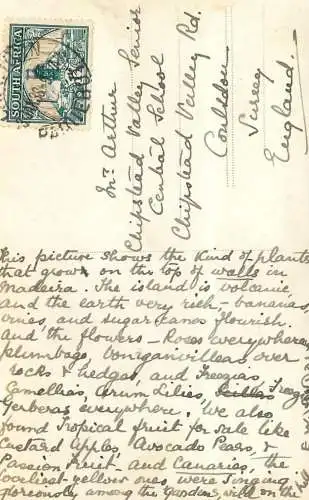 SOUTH AFRICA
Mr Arthur
Chipstead Valley Senior
Central School
Chipstead Valley Rd.
Coulsdon
Surrey
England.
This picture shows the kind of plants
that grow on the top of walls in
Madeira. The island is volcanic
and the earth very rich,- bananas,
vines, and sugar canes flourish.
And the flowers - Roses everywhere,
plumbago, bougainvilleas over
rocks & hedges, and Freezias,
Camellias, Arum Lilies,
Gerberas everywhere. We also
found Tropical fruit for sale like
Custard Apples, Avocado Pears, &
Passion Fruit- and Canaries, the
loveliest yellow ones, were singing
gloriously among the Gardens, all on the